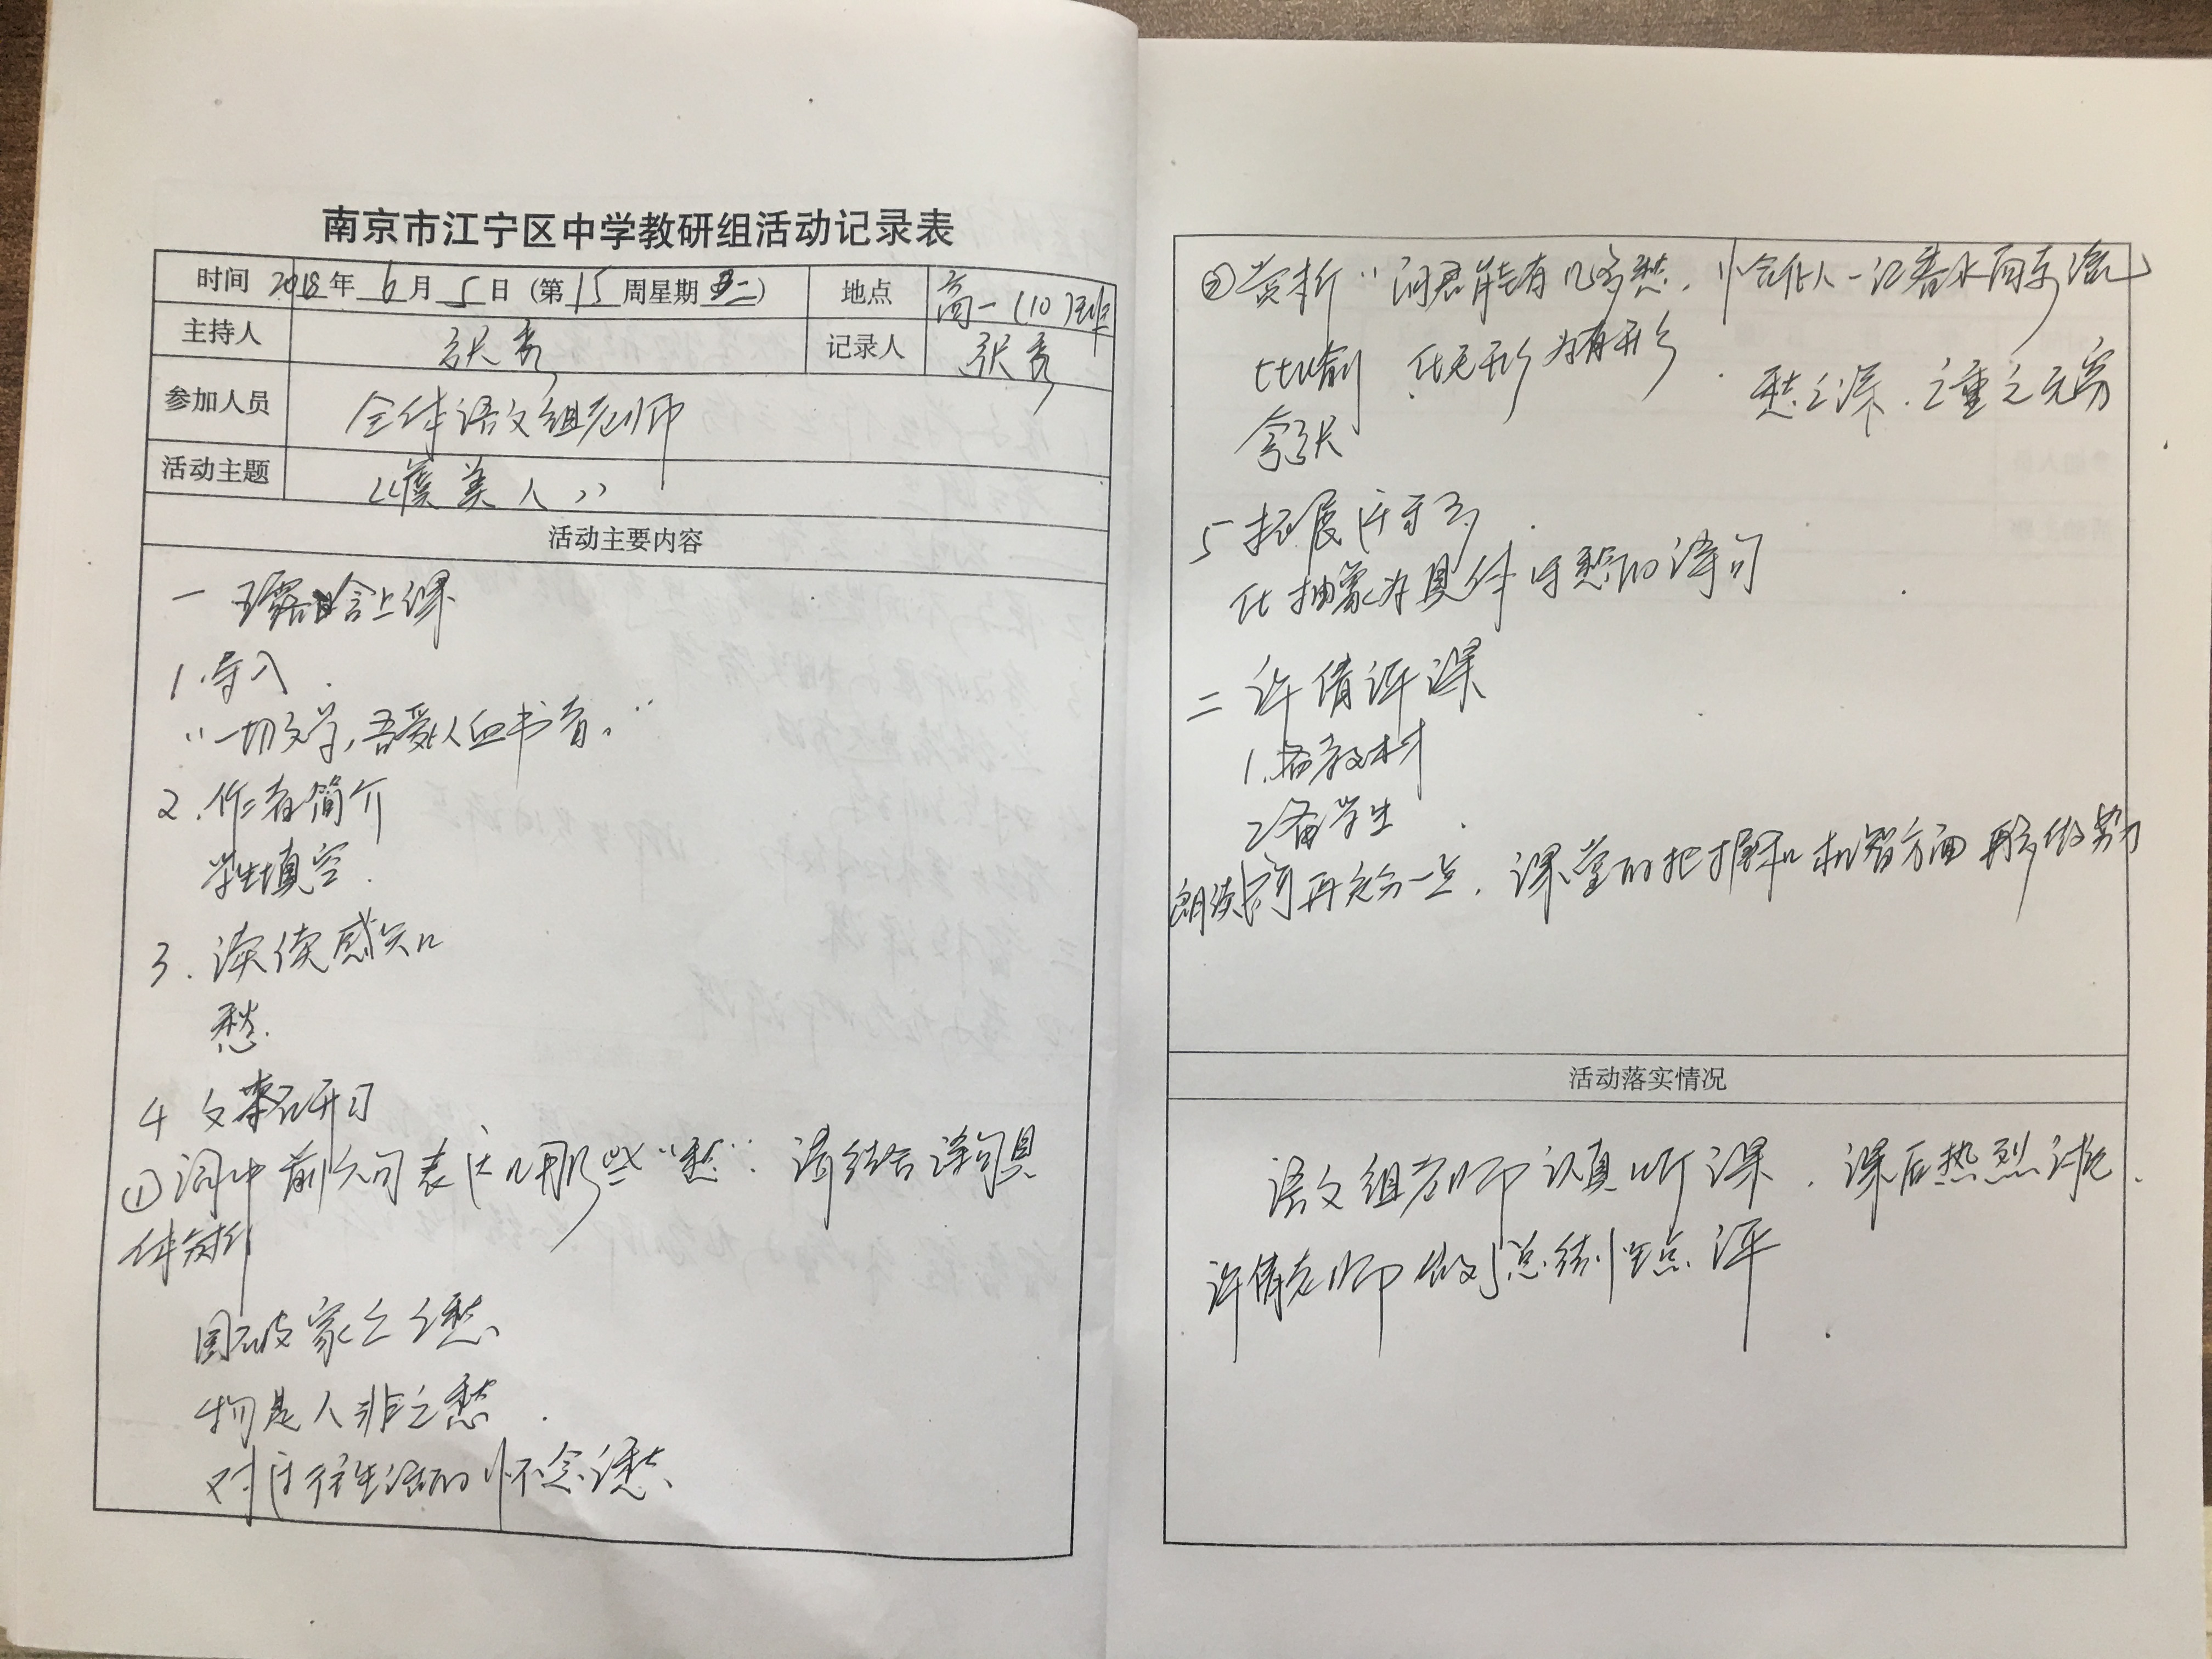 南京市江宁区中学教研组活动记录表
时间 2018年 6月 5日 (第 15 周星期 二) 地点 高一(10)班
主持人 张秀 记录人 张秀
参加人员 全体语文组老师
活动主题 《虞美人》
活动主要内容
一 上课
1.导入
“一切文学,吾爱以血书者。”
2.作者简介
学生填空.
3.读 感知
愁.
4 文本研习
①词中前六句表达了哪些“愁”.请结合词句具
体分析
国破家亡之愁
物是人非之愁.
对过往生活的怀念之愁.
②赏析“问君能有几多愁,恰似一江春水向东流”
比喻 化无形为有形. 愁之深.之重之无穷
夸张
5 拓展迁移.
化抽象为具体写愁的诗句
二 许倩评课
1.备教材
2备学生.
朗读 再充分一点.课堂的把握和机智方面再多做努力
活动落实情况
语文组老师认真听课.课后热烈讨论.
许倩老师做了总结性点评